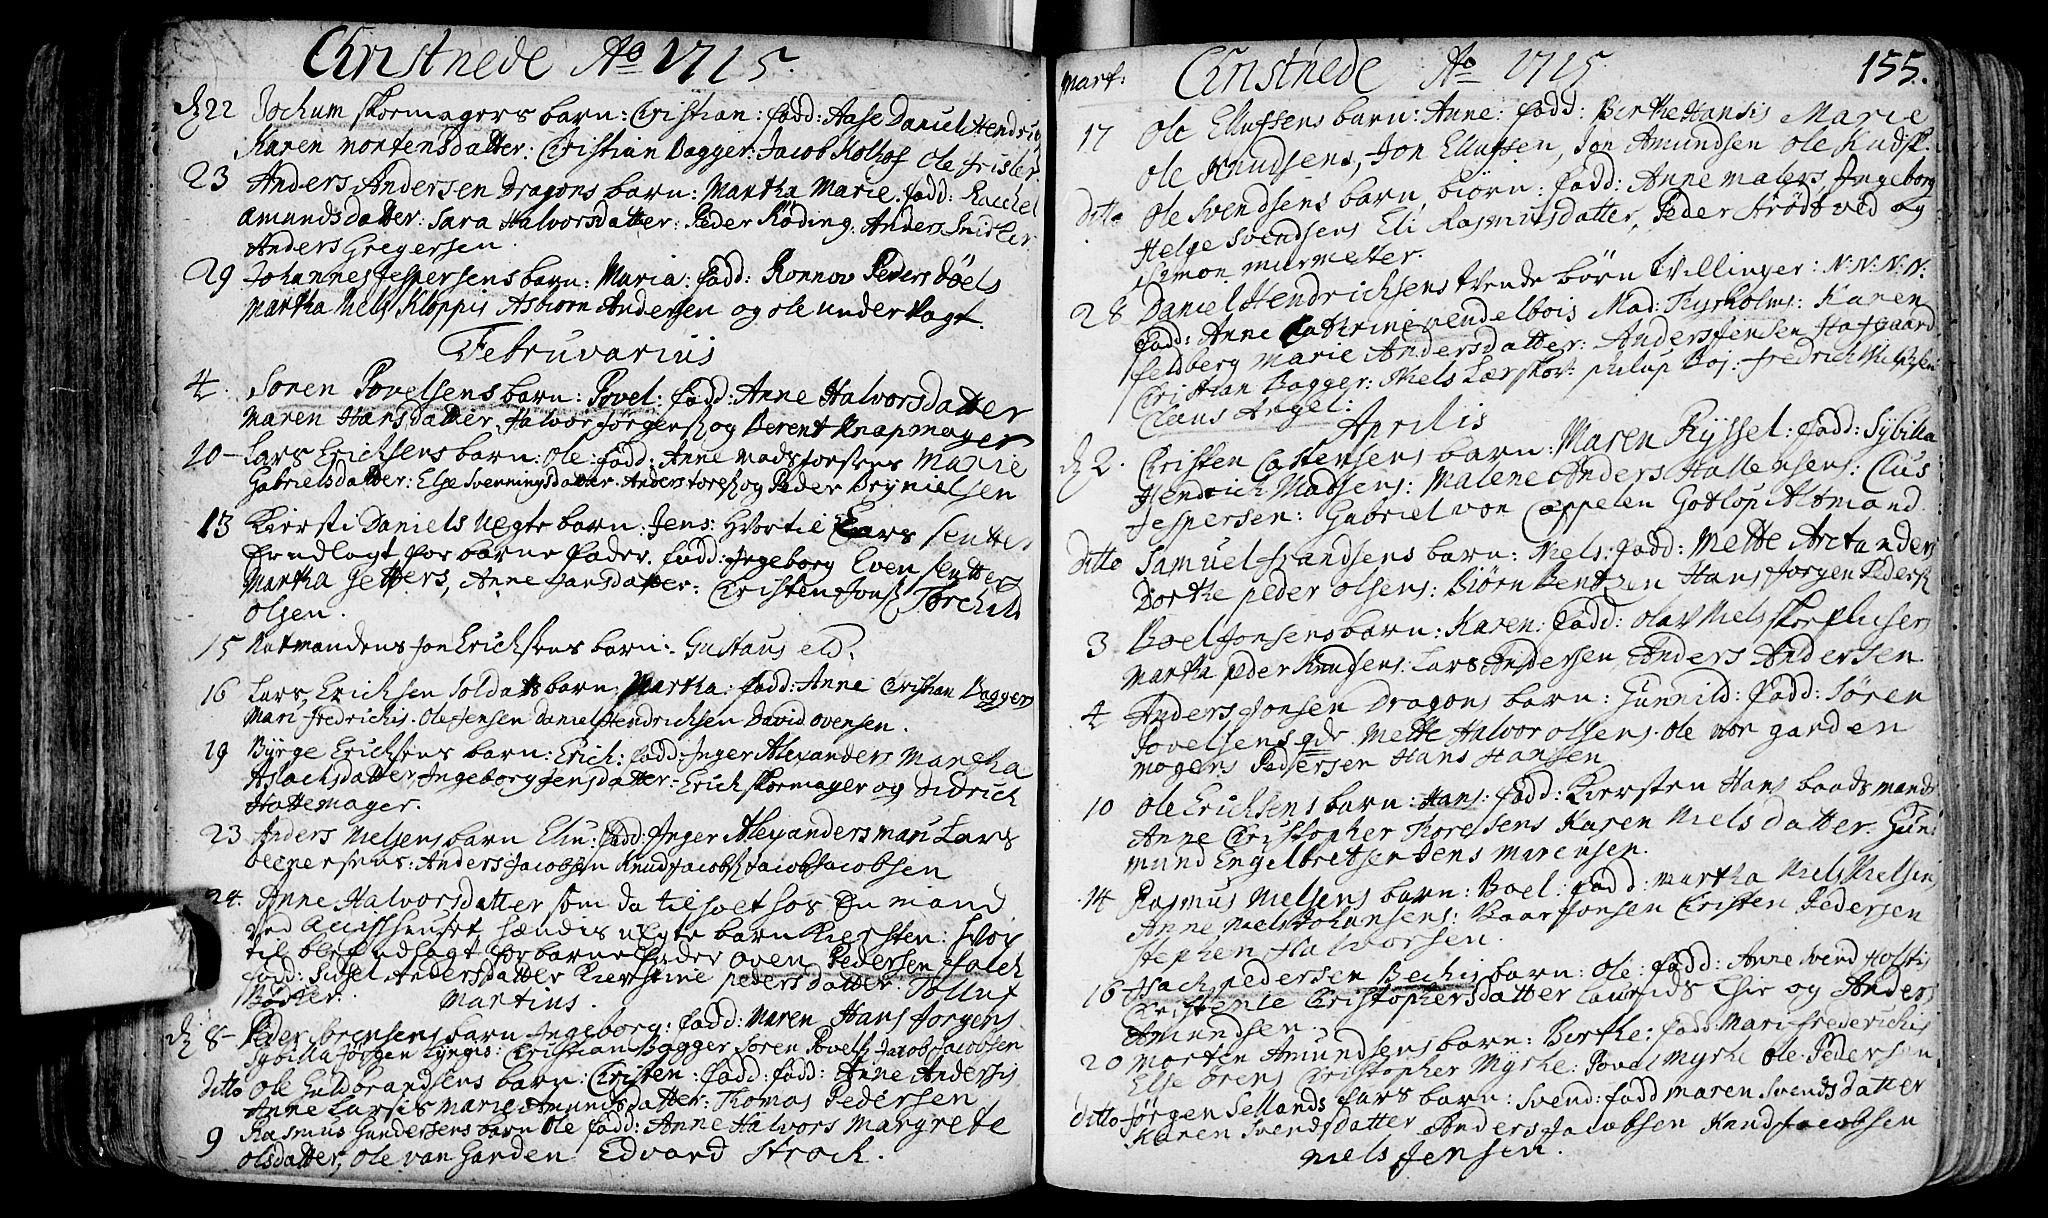 Christnede Ao 1715.
d 22 Jochum skormagers barn: Christian: fadd: Aase Daniel Hendrich
Karen Mortensdatter: Christian Bagger: Jacob Kolhof Ole Frisler
23 Anders Andersen Dragons barn: Martha Marie: fadd: Rachel
Amundsdatter: Sara Halvorsdatter: Peder Røding: Anders Snidker
Anders Gregersen.
29 Johannes Jespersens barn: Maria: fadd: Ronnov Peders
Martha Niels Kloppis Asbiørn Andersen og ole under Vagt.
Februvarius
4. Soren Povelsens barn: Povel: fadd: Anne Halvorsdatter
Maren Hansdatter, Halvor Jørgens og Berent Knapmager
10 Lars Erichsens barn: Ole: fadd: Anne Mads Marie
Gabrielsdatter: Else Svenningsdatter. Anders og Peder Brynielsen
13 Kiersti Daniels Uegte barn: Jens: Hvortil Lars
er udlagt for barne fader. fadd: Ingeborg Even
Martha Getters, Anne Jansdatter: Christen Jons Torchild
Olsen.
15 Natmandens Jon Erichsens barn: Gustaus eld.
16 Lars Erichsen Soldats barn: Martha: fadd: Anne Christian Baggers
Mari Fredrichis. Ole Jensen Daniel Hendrichsen David Ovensen.
19 Byrge Erichsens barn: Erich: fadd: Inger Alexanders Martha
Aslachsdatter Ingeborg Jensdatter: Erich skormager og Didrich
Hattemager.
23 Anders Nielsens barn Elin: fadd: Inger Alexanders Mari Lars
Anders Jacobsen Knud Jacobs Jacob Jacobsen
24. Anne Halvorsdatter som da tilholt hos En mand
ved hendis uegte barn Kiersten: hvor
til blef udlagt for barne fader Oven Pedersen Falch
fadd: Sitsel Andersdatter Kierstine Pedersdatter. Tolluf
Martius.
d 8 Peder Sørensens barn Ingeborg: fadd: Maren Hans Jorgens
Sybilla Jørgen Lyngis: Christian Bagger Soren Povels Jacob Jacobsen
ditto Ole Guldbrandsens barn: Christen: fadd: fadd: Anne Andersis
Anne Larsis Marie Amundsdatter: Thomas Pedersen
9 Rasmus Gundersens barn Ole fadd: Anne Halvors Margrete
Olsdatter, Ole van Garden Edvard Strock.
Mart: Christnede Ao 1715. 155.
17 Ole Ellufsens barn: Anne: fadd: Birthe Hansis Marie
Ole Knudsens, Jon Ellufsen, Jon Amundsen Ole Kudsk.
ditto Ole Svendsens barn, biørn: fadd: Anne Malers, Ingeborg
Helge Svendsens Eli Rasmusdatter, Peder Strødtved og
Simon murmester.
28 Daniel Hendrichsens tvende børn tvillinger: N: N: N: N:
fadd: Anne Cathrine Vendelbois Mad: Thyrholms: Karen
Feldberg Marie Andersdatter: Anders Jensen Hafgaard
Christian Bagger: Niels Lærskov: philup Boj: Fredrich Nielsen
Claus Angel:
Aprilis
d 2. Christen Castensens barn: Maren Ryssel: fadd: Sybilla
Hendrich Madsens: Malene Anders Hallensens: Claus
Jespersen: Gabriel von Cappelen Gotlop Altmand
ditto Samuel Frandsens barn: Niels: fadd: Mette Arctanders
Dorthe peder Olsens: Biørn Bentzen Hans Jorgen Peders
3 Boel Jonsens barn: Karen: fadd: Olav Niels
Martha peder Knudsens: Lars Andersen, Anders Andersen
4 Anders Jonsen Dragons barn: Gunnild: fadd: Søren
Povelsens qdr. Mette Halvor Olsens. Ole von garden
Mogens Pedersen Hans Hansen
10 Ole Erichsens barn: Hans: fadd: Kiersten Hans baadsmands
Anne Christopher Thoresens Karen Nielsdatter. Gun
mund Engelbretsen Jens Mørensen.
14 Rasmus Nielsens barn: Boel: fadd: Martha Niels Nielsens
Anne Niels Johansens: Baar Jonsen Christen Pedersen
Stephen Halvorsen.
16 Isach pedersen Bechis barn: Ole: fadd: Anne Svend Holstis
Christence Christophersdatter Laurids og Anders
Amundsen.
20 Morten Amundsens barn: Birthe: fadd: Mari Frederichis
Else Christopher Myrhe: Povel Myrhe Ole Pedersen
ditto Jørgen Sellands fars barn: Svend: fadd Maren Svendsdatter
Karen Svendsdatter Anders Jacobsen Knud Jacobsen
Niels Jensen.